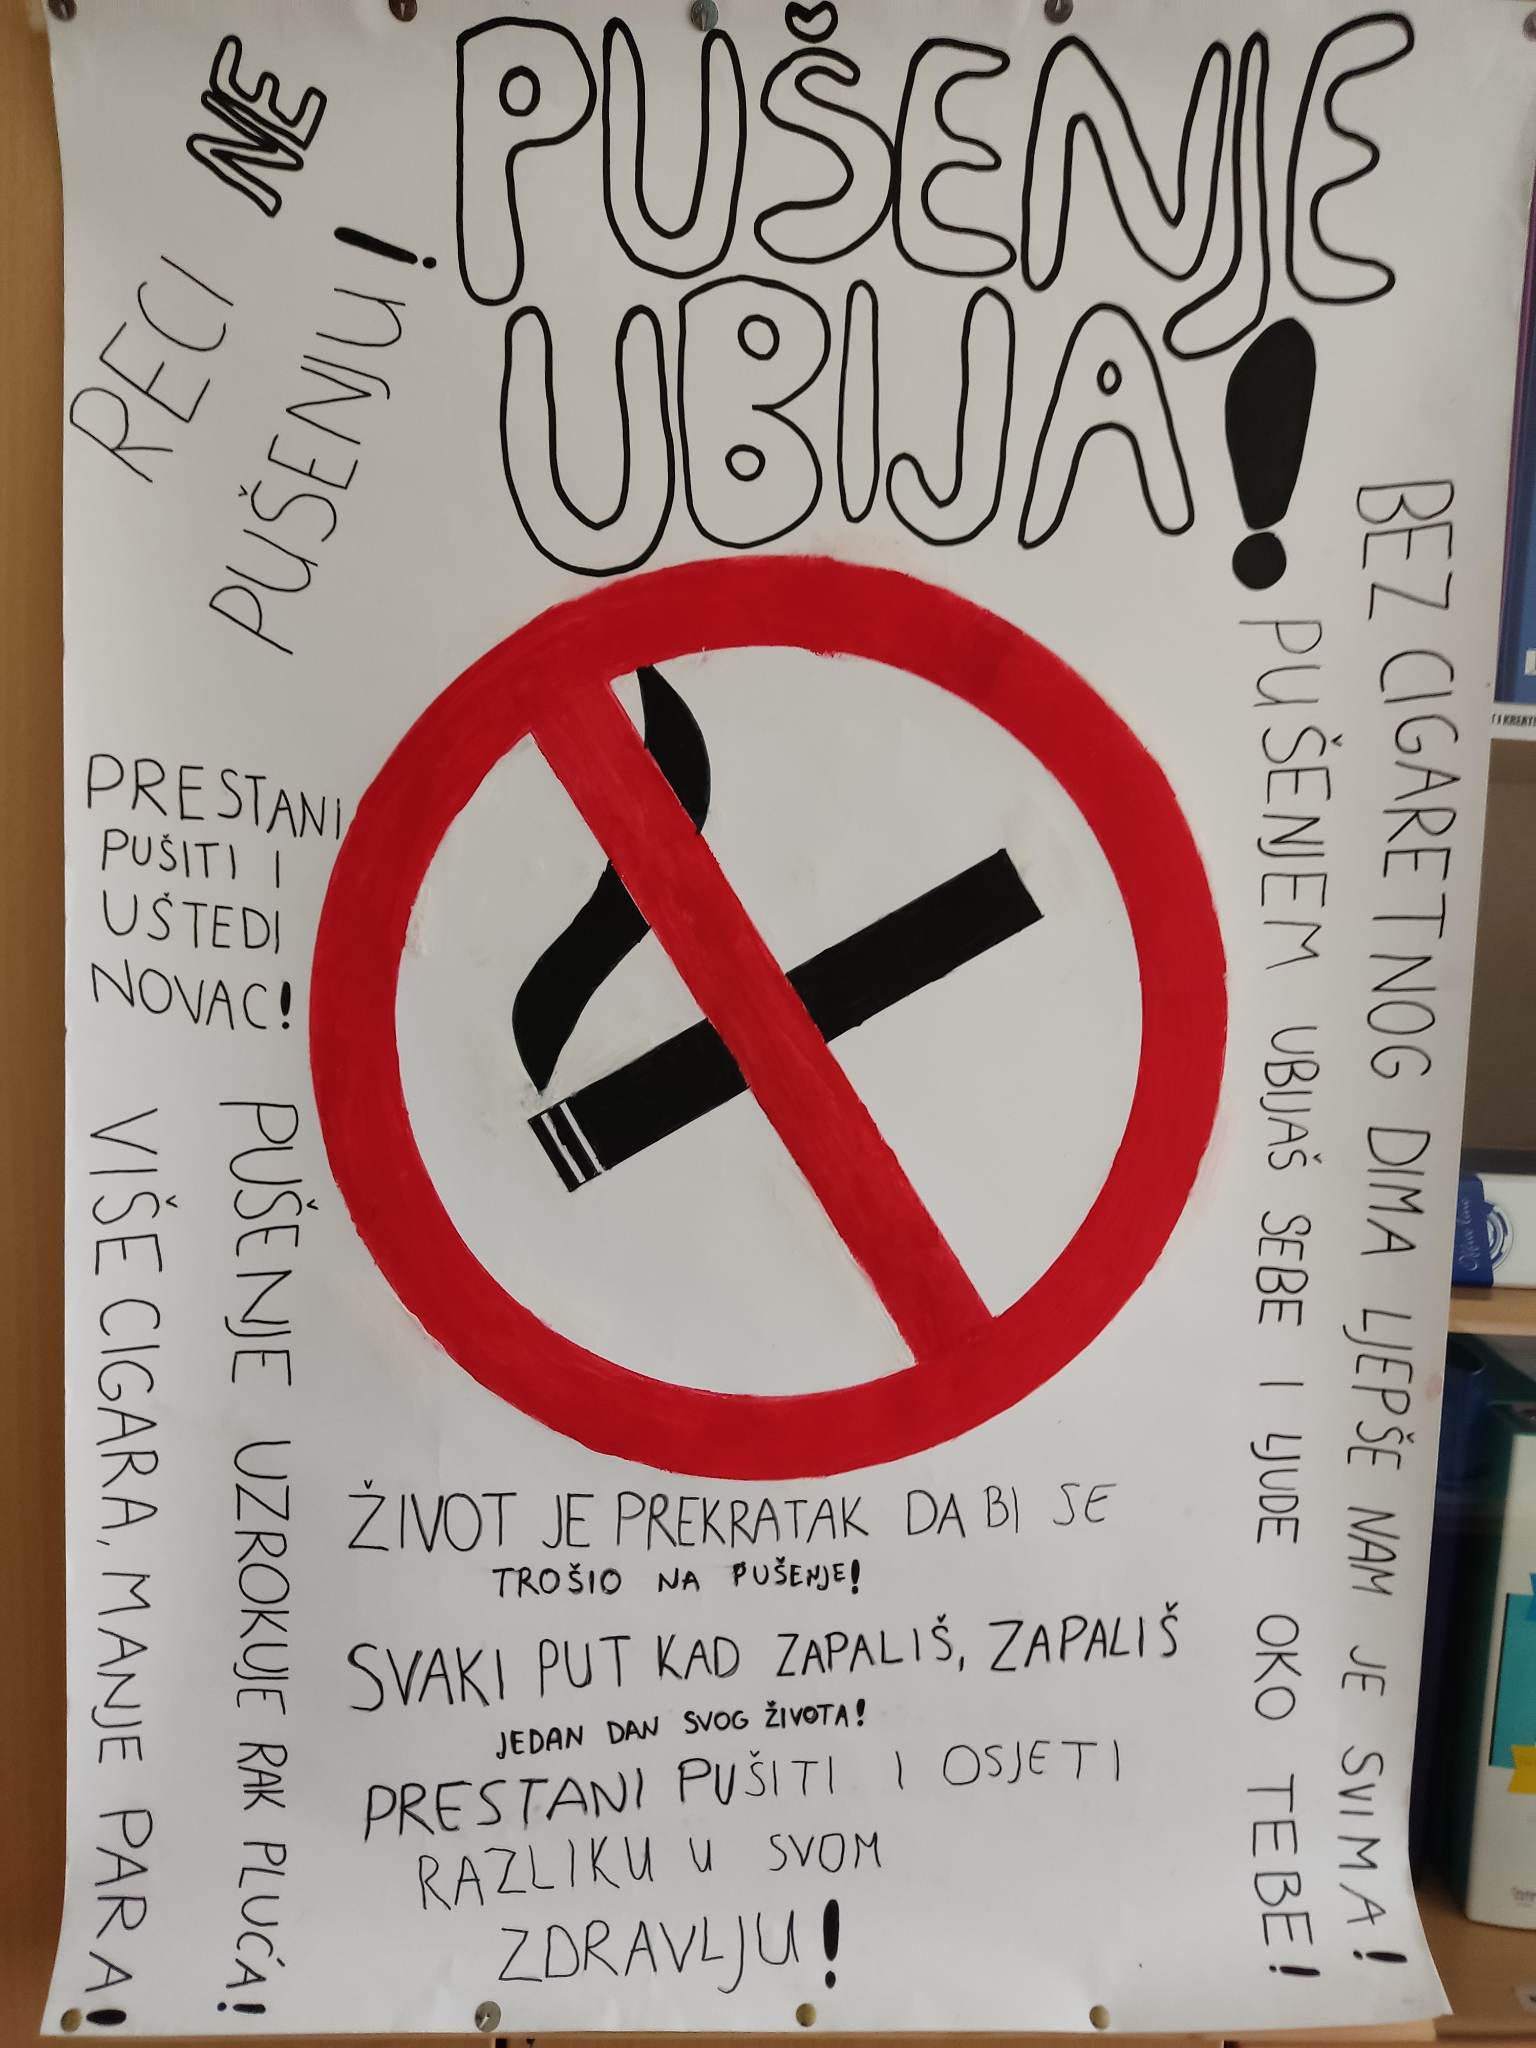 PUŠENJE
UBIJA!
RECI NE
PUŠENJU!
PRESTANI
PUŠITI I
UŠTEDI
NOVAC!
VIŠE CIGARA, MANJE PARA!
PUŠENJE UZROKUJE RAK PLUĆA!
BEZ CIGARETNOG DIMA LJEPŠE NAM JE SVIMA!
PUŠENJEM UBIJAŠ SEBE I LJUDE OKO TEBE!
ŽIVOT JE PREKRATAK DA BI SE
TROŠIO NA PUŠENJE!
SVAKI PUT KAD ZAPALIŠ, ZAPALIŠ
JEDAN DAN SVOG ŽIVOTA!
PRESTANI PUŠITI I OSJETI
RAZLIKU U SVOM
ZDRAVLJU!